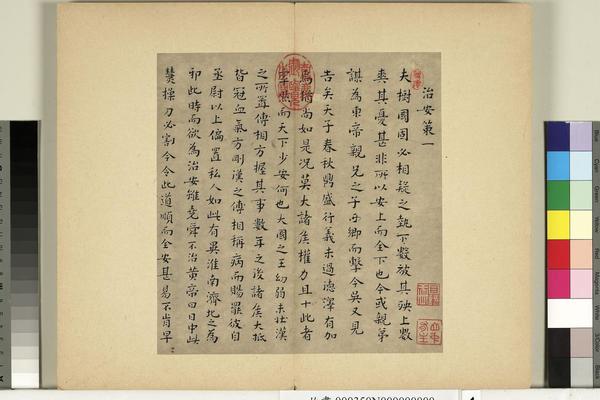 治安策一
夫樹國固必相疑之埶下數被其殃上數
爽其憂甚非所以安上而全下也今或親弟
謀為東帝親兄之子西鄉而擊今吳又見
告矣天子春秋鼎盛行義未過德澤有加
焉猶尚如是況莫大諸侯權力且十此者
然而天下少安何也大國之王幼弱未壯漢
之所置傅相方握其事數年之後諸侯大抵
皆冠血氣方剛漢之傅相稱病而賜罷彼自
丞尉以上偏置私人如此有異淮南濟北之為
邪此時而欲為治安雖堯舜不治黃帝曰日中必
操刀必割今令此道順而全安甚易不肯早